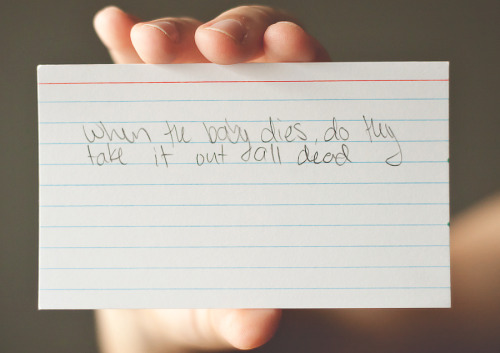 when the baby dies, do they
take it out all dead